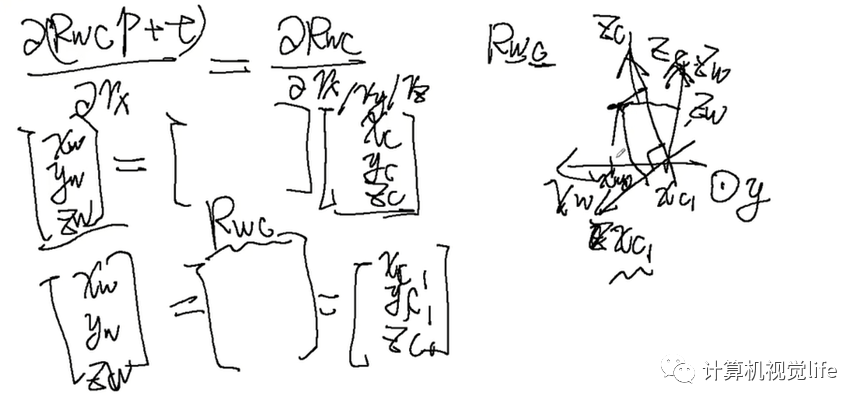 ∂(RWC P + t) / ∂rx = ∂RWC / ∂rx/ry/rz
[xw yw zw] = [ ] [xc yc zc]
RWC
[xw yw zw] = [ ] = [xc1 yc1 zc1]
RWC
zc1
zw
zw
xw
xc1
y
xc1
计算机视觉life